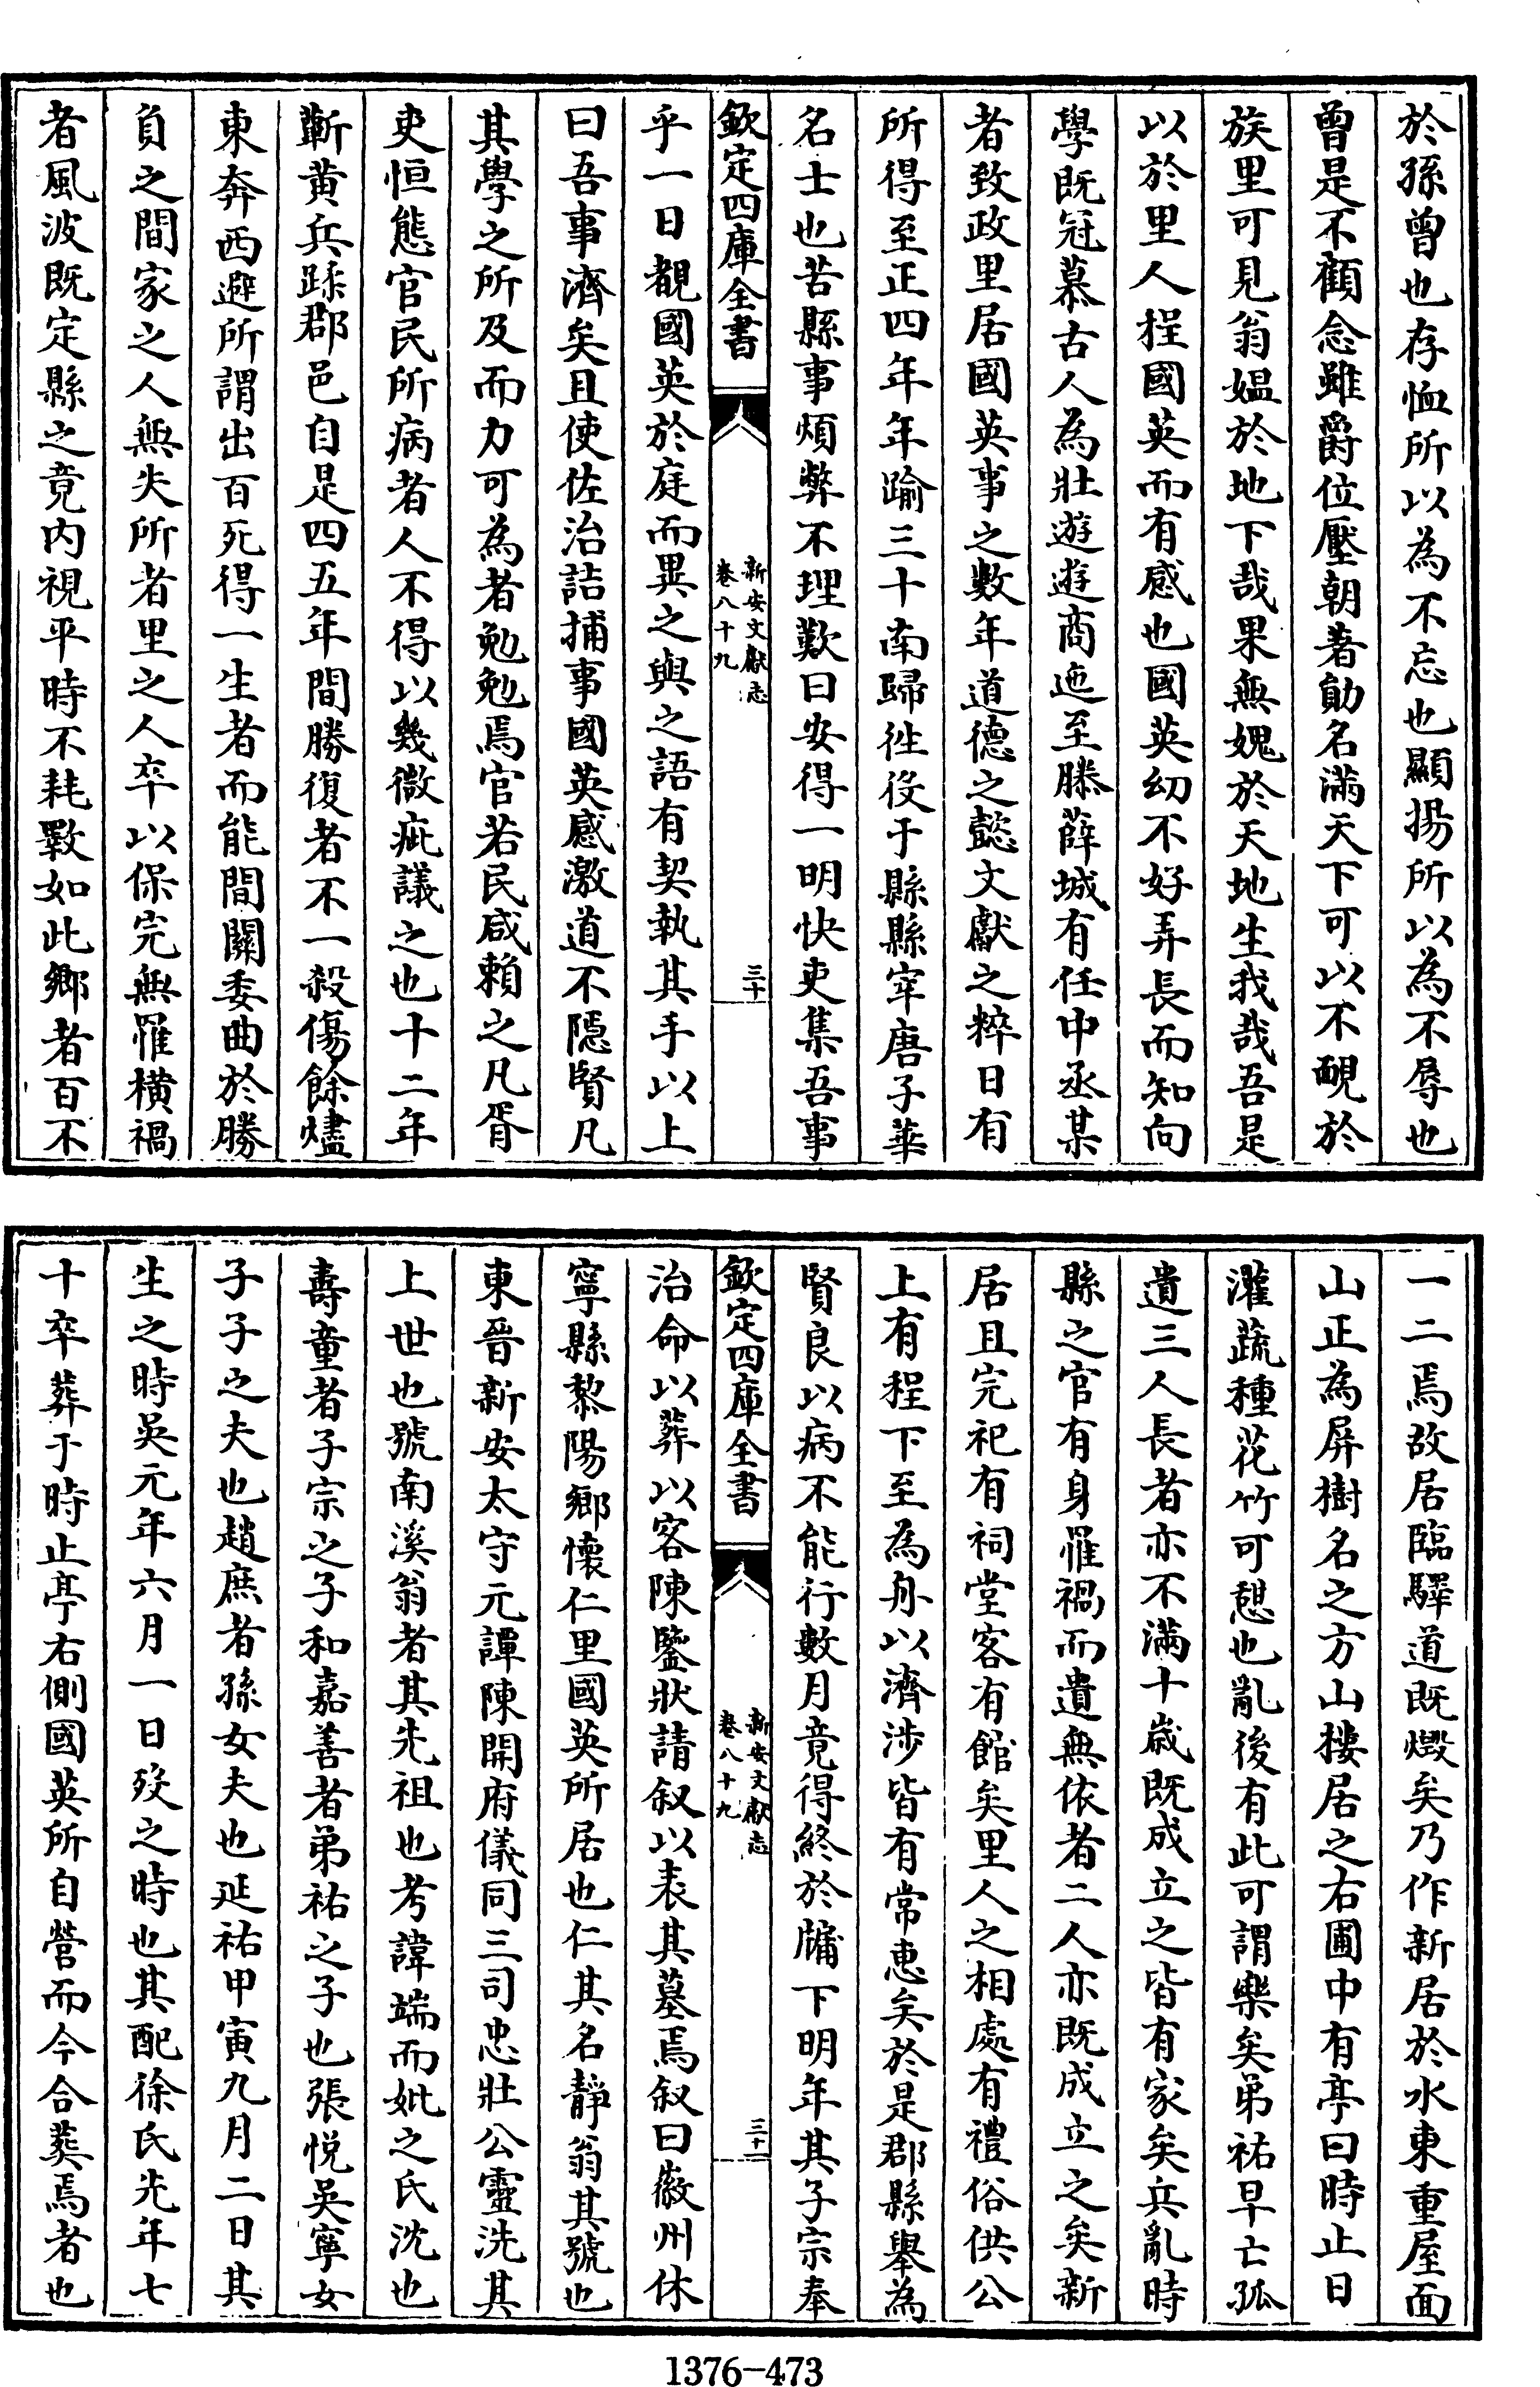 於孫曽也存恤所以為不忘也顯揚所以為不辱也
曽是不顧念雖爵位壓朝著勛名滿天下可以不靦於
族里可見翁媼於地下哉果無媿於天地生我哉吾是
以於里人程國英而有感也國英幼不好弄長而知向
學既冠慕古人為壯遊遊商迤至滕薛城有任中丞某
者致政里居國英事之數年道德之懿文獻之粹日有
所得至正四年年踰三十南歸徃役于縣縣宰唐子華
名士也苦縣事煩弊不理歎曰安得一明快吏集吾事
欽定四庫全書
新安文獻志
卷八十九
三十
乎一日覩國英於庭而異之與之語有契執其手以上
曰吾事濟矣且使佐治詰捕事國英感激道不隠賢凡
其學之所及而力可為者勉勉焉官若民咸賴之凡胥
吏恒態官民所病者人不得以幾微疵議之也十二年
蘄黄兵蹂郡邑自是四五年間勝復者不一殺傷餘燼
東奔西避所謂出百死得一生者而能間關委曲於勝
負之間家之人無失所者里之人卒以保完無罹横禍
者風波既定縣之竟内視平時不耗斁如此鄉者百不
一二焉故居臨驛道既燬矣乃作新居於水東重屋面
山正為屏樹名之方山樓居之右圃中有亭曰時止日
灌蔬種花竹可憩也亂後有此可謂樂矣弟祐早亡孤
遺三人長者亦不滿十歳既成立之皆有家矣兵亂時
縣之官有身罹禍而遺無依者二人亦既成立之矣新
居且完祀有祠堂客有館矣里人之相處有禮俗供公
上有程下至為舟以濟涉皆有常惠矣於是郡縣舉為
賢良以病不能行數月竟得終於牖下明年其子宗奉
欽定四庫全書
新安文獻志
卷八十九
三十一
治命以葬以客陳鑒狀請叙以表其墓焉叙曰徽州休
寧縣黎陽鄉懷仁里國英所居也仁其名靜翁其號也
東晉新安太守元譚陳開府儀同三司忠壯公靈洗其
上世也號南溪翁者其先祖也考諱端而妣之氏沈也
壽童者子宗之子和嘉善者弟祐之子也張悦吳寧女
子子之夫也趙庶者孫女夫也延祐甲寅九月二日其
生之時吳元年六月一日歿之時也其配徐氏先年七
十卒葬于時止亭右側國英所自營而今合葬焉者也
1376-473